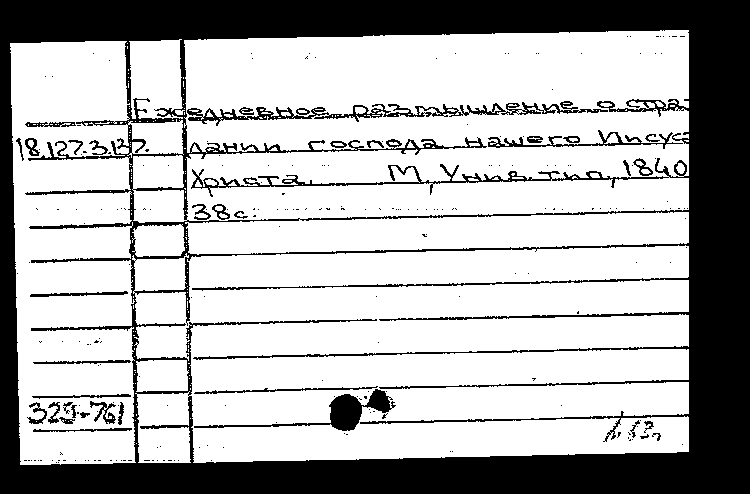 Ежедневное размышление о стра-
18.127.3.137. дании господа нашего Иисуса
Христа. М, Унив. тип, 1840
38с.
329-761